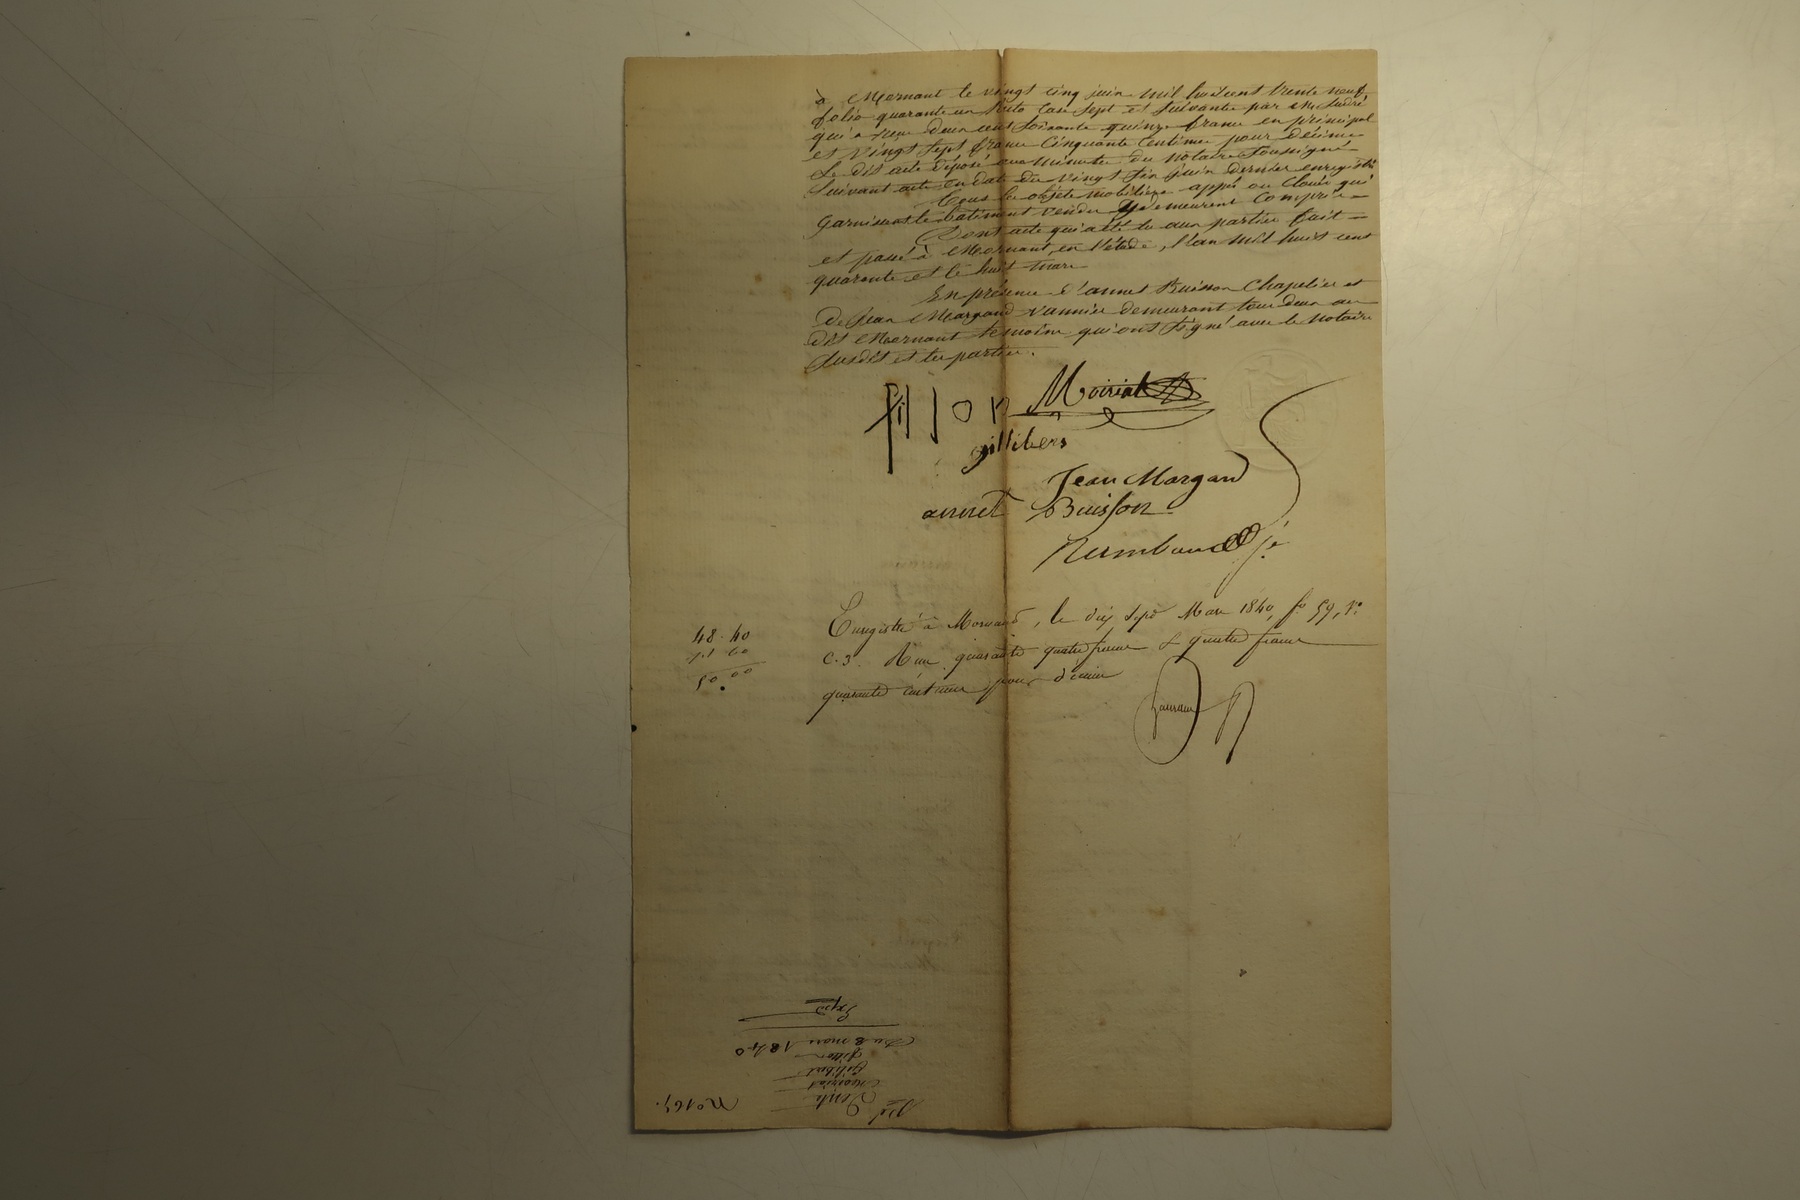 à Mornant le vingt cinq juin mil huit cent trente neuf
folio quarante un recto case sept et suivante par
qui a reçu deux cent soixante quinze francs en principal
et vingt sept francs cinquante centimes pour décime
Le dit acte déposé aux minutes du notaire soussigné
suivant acte en date du vingt six juin dernier enregistré
Tous les objets mobiliers ou cloués qui
garnissent le bâtiment vendu y demeurent compris =
Dont acte qui a été lu aux parties fait =
et passé à Mornant, en l'étude, l'an mil huit cent
quarante et le huit mars
En présence d'annet Buisson Chapelier et
De Jean Margand vannier demeurant tous deux au
dit Mornant témoins qui ont signé avec le notaire
susdit et les parties.
fillon Moirial
gillibers
Jean Margand
annet Buisson
Enregistré à Mornand, le dix sept Mars 1840, fo 59, ro
c. 3. Reçu quarante quatre francs & quatre francs
quarante centimes pour décime
48 . 40
1 60
50 . 00
No 164.
Vente
Moirial
Gilibert
fillon
Du 8 mars 1840
Expé